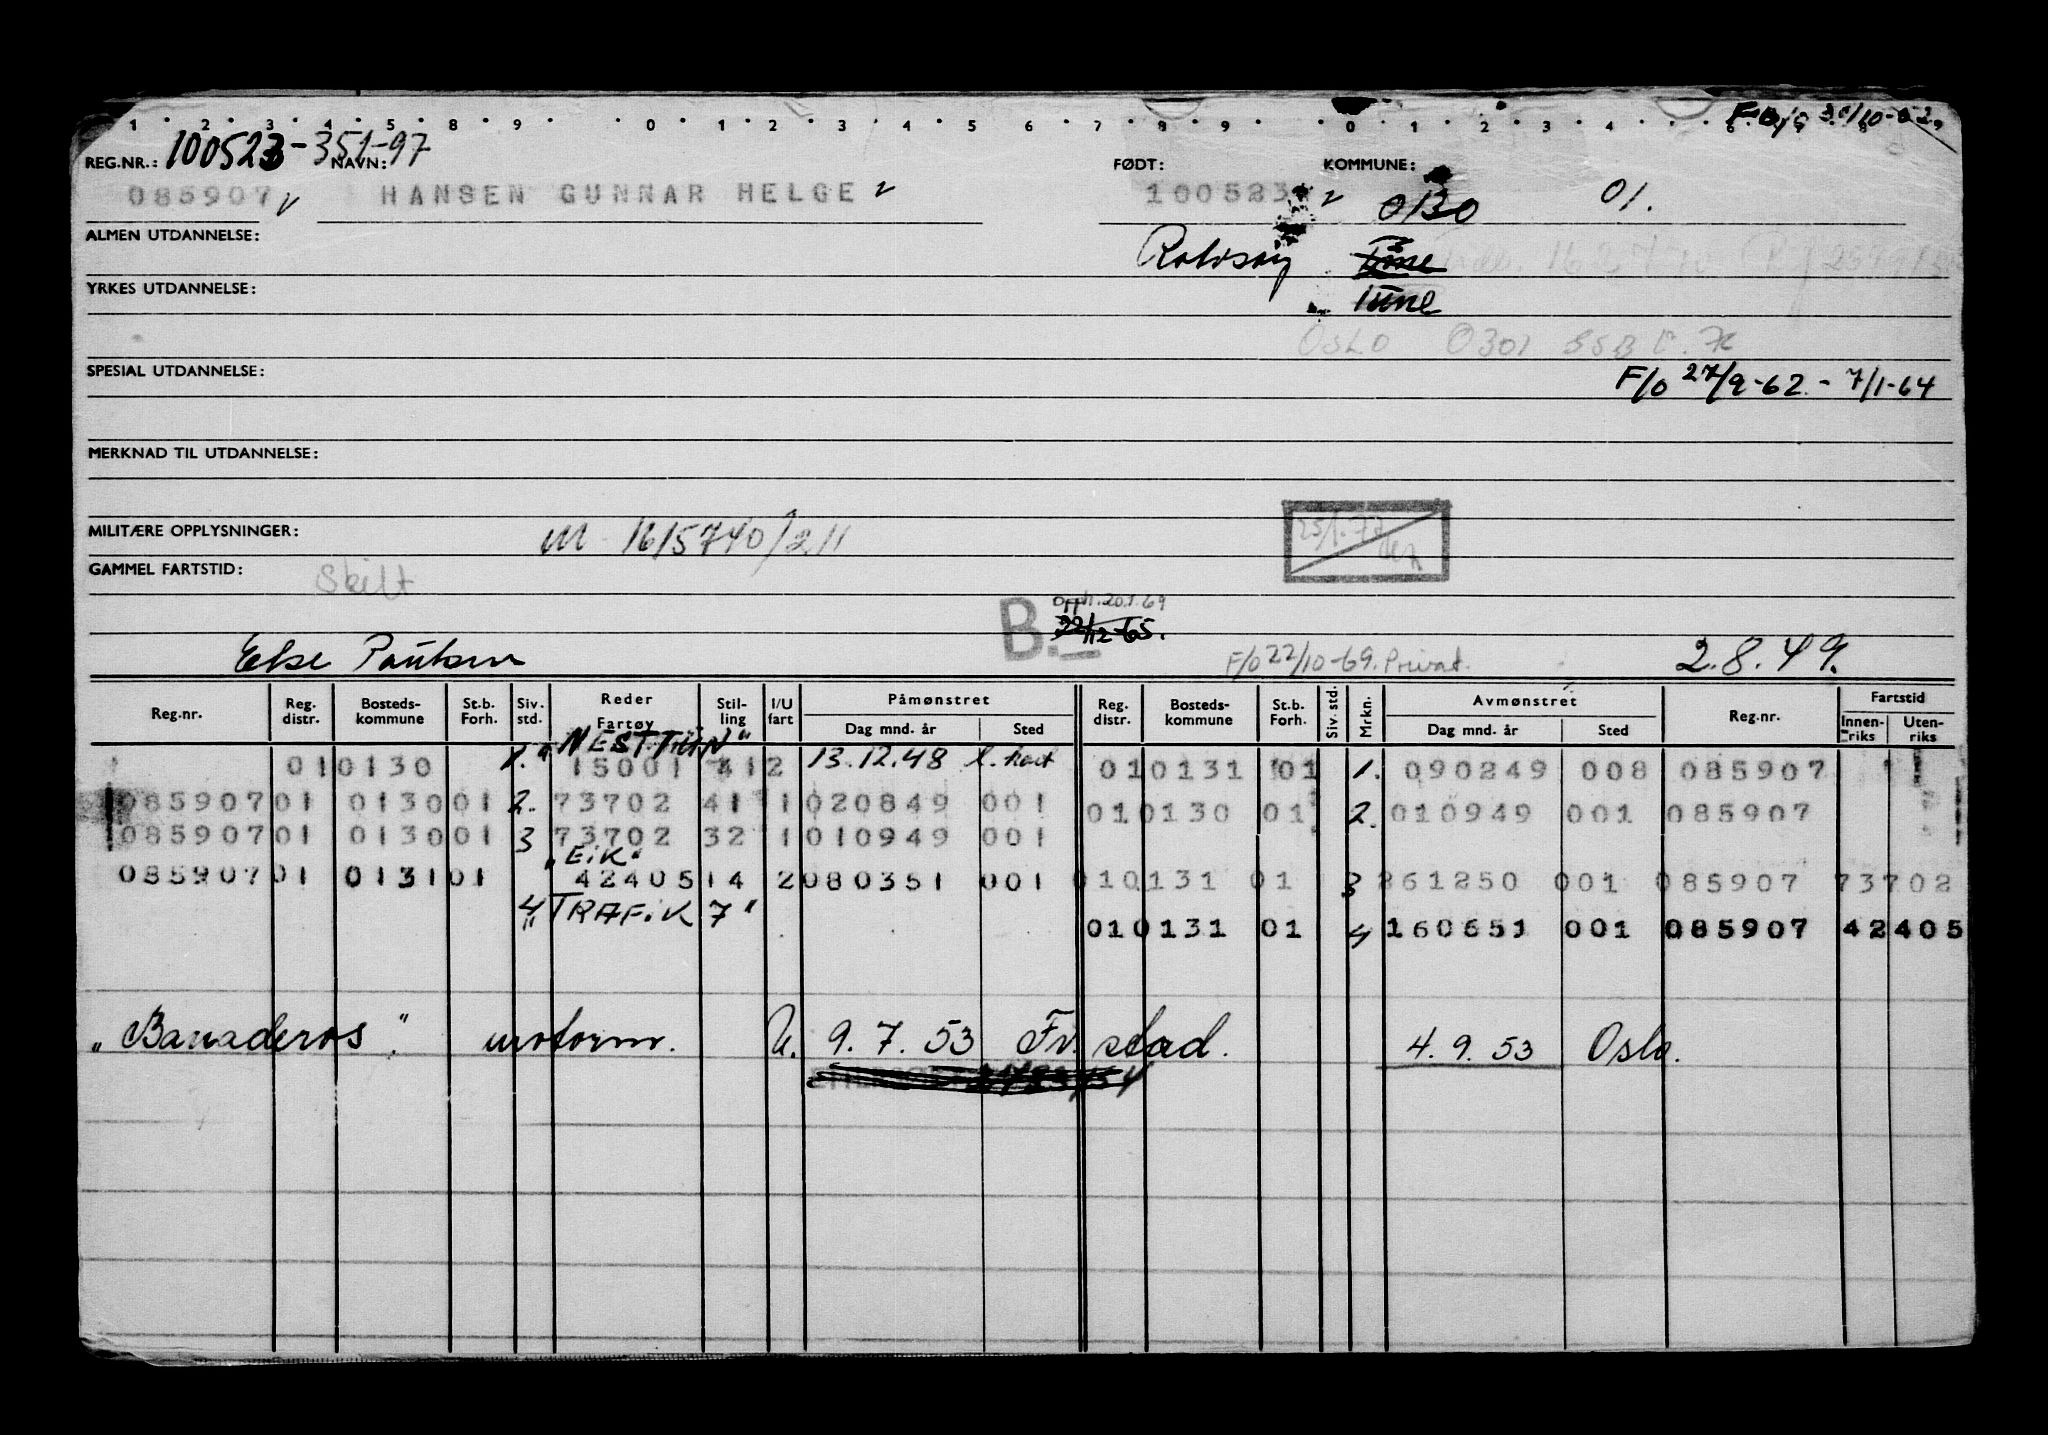 1 · 2 · 3 · 4 · 5 · 8 · 9 · 0 · 1 · 2 · 3 · 4 · 5 · 7 · 8 · 9 · 0 · 1 · 2 · 3 · 4
100523-351-97
REG.NR.: NAVN: FØDT: KOMMUNE:
085907 HANSEN GUNNAR HELGE 100523 0130 01.
ALMEN UTDANNELSE: Rolvsøy
YRKES UTDANNELSE: Tune
OSLO 0301
SPESIAL UTDANNELSE: F/o 27/9-62 - 7/1-64
MERKNAD TIL UTDANNELSE:
MILITÆRE OPPLYSNINGER: M 1615740/211
25/1.77
GAMMEL FARTSTID: Skilt
B. opph. 20.1.69
22/12-65.
Else Paulsen F/o 22/10-69. Privat. 2.8.49.
Reg.nr. Reg. distr. Bosteds-kommune St.b. Forh. Siv. std. Reder Fartøy Stil-ling I/U fart Påmønstret Dag mnd. år Sted Reg. distr. Bosteds-kommune St.b. Forh. Siv. std. Mrkn. Avmønstret Dag mnd. år Sted Reg.nr. Fartstid Innen-riks Uten-riks
"NESTTUN"
010130 1. 15001 412 13.12.48 010131 01 1. 090249 008 085907
085907 01 0130 01 2. 73702 41 1 020849 001 010130 01 2. 010949 001 085907
085907 01 0130 01 3 73702 32 1 010949 001
"EIK"
085907 01 0131 01 42405 14 2 080351 001 010131 01 3 261250 001 085907 73702
4 "TRAFIK 7"
010131 01 4 160651 001 085907 42405
"Banaderos". motorm. U. 9.7.53 Fr.stad. 4.9.53 Oslo.